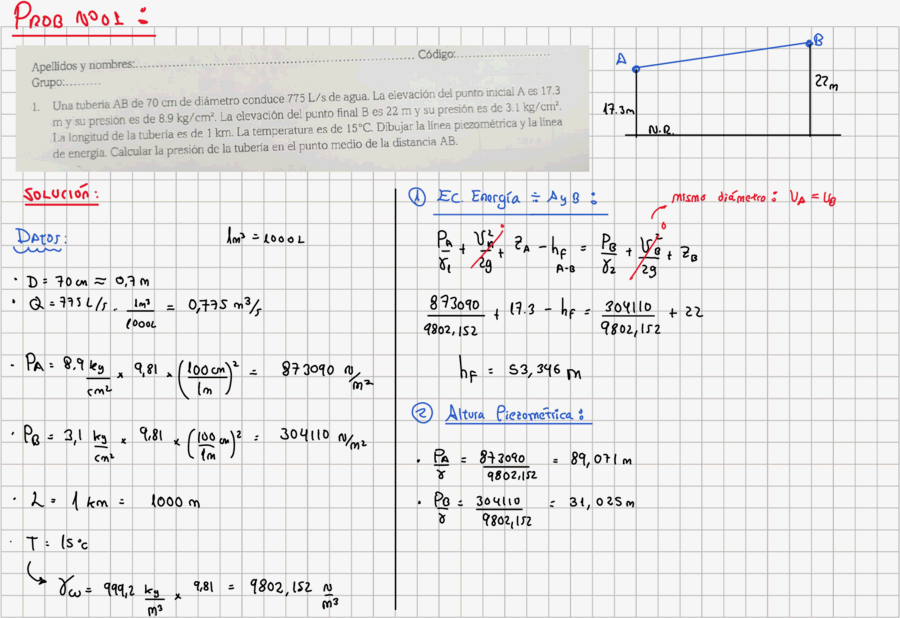 PROB Nº01:
Apellidos y nombres:............ Código:............
Grupo:.........
1. Una tubería AB de 70 cm de diámetro conduce 775 L/s de agua. La elevación del punto inicial A es 17.3
m y su presión es de 8.9 kg/cm². La elevación del punto final B es 22 m y su presión es de 3.1 kg/cm².
La longitud de la tubería es de 1 km. La temperatura es de 15°C. Dibujar la línea piezométrica y la línea
de energía. Calcular la presión de la tubería en el punto medio de la distancia AB.
A
B
17.3m
22m
N.R.
SOLUCIÓN:
DATOS:
1m³ = 1000L
· D = 70 cm ≈ 0,7 m
· Q = 775 L/s · 1m³/1000L = 0,775 m³/s
· PA = 8,9 kg/cm² × 9,81 × (100cm/1m)² = 873090 N/m²
· PB = 3,1 kg/cm² × 9,81 × (100cm/1m)² = 304110 N/m²
· L = 1 km = 1000 m
· T = 15°c
γw = 999,2 kg/m³ × 9,81 = 9802,152 N/m³
① Ec. Energía ÷ A y B:
mismo diámetro: VA = VB
PA/γ1 + VA²/2g + ZA - hf A-B = PB/γ2 + VB²/2g + ZB
0
0
873090/9802,152 + 17.3 - hf = 304110/9802,152 + 22
hf = 53,346 m
② Altura Piezométrica:
· PA/γ = 873090/9802,152 = 89,071 m
· PB/γ = 304110/9802,152 = 31,025 m